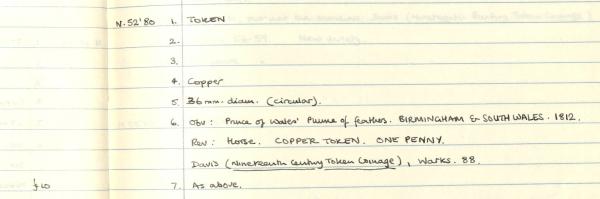 N.52'80 1. TOKEN
2.
3.
4. Copper
5. 36mm. diam. (circular).
6. Obv: Prince of Wales' Plume of feathers. BIRMINGHAM & SOUTH WALES. 1812.
Rev: Horse. COPPER TOKEN. ONE PENNY.
Davis (Nineteenth Century Token Coinage), Warks. 88.
£10 7. As above.